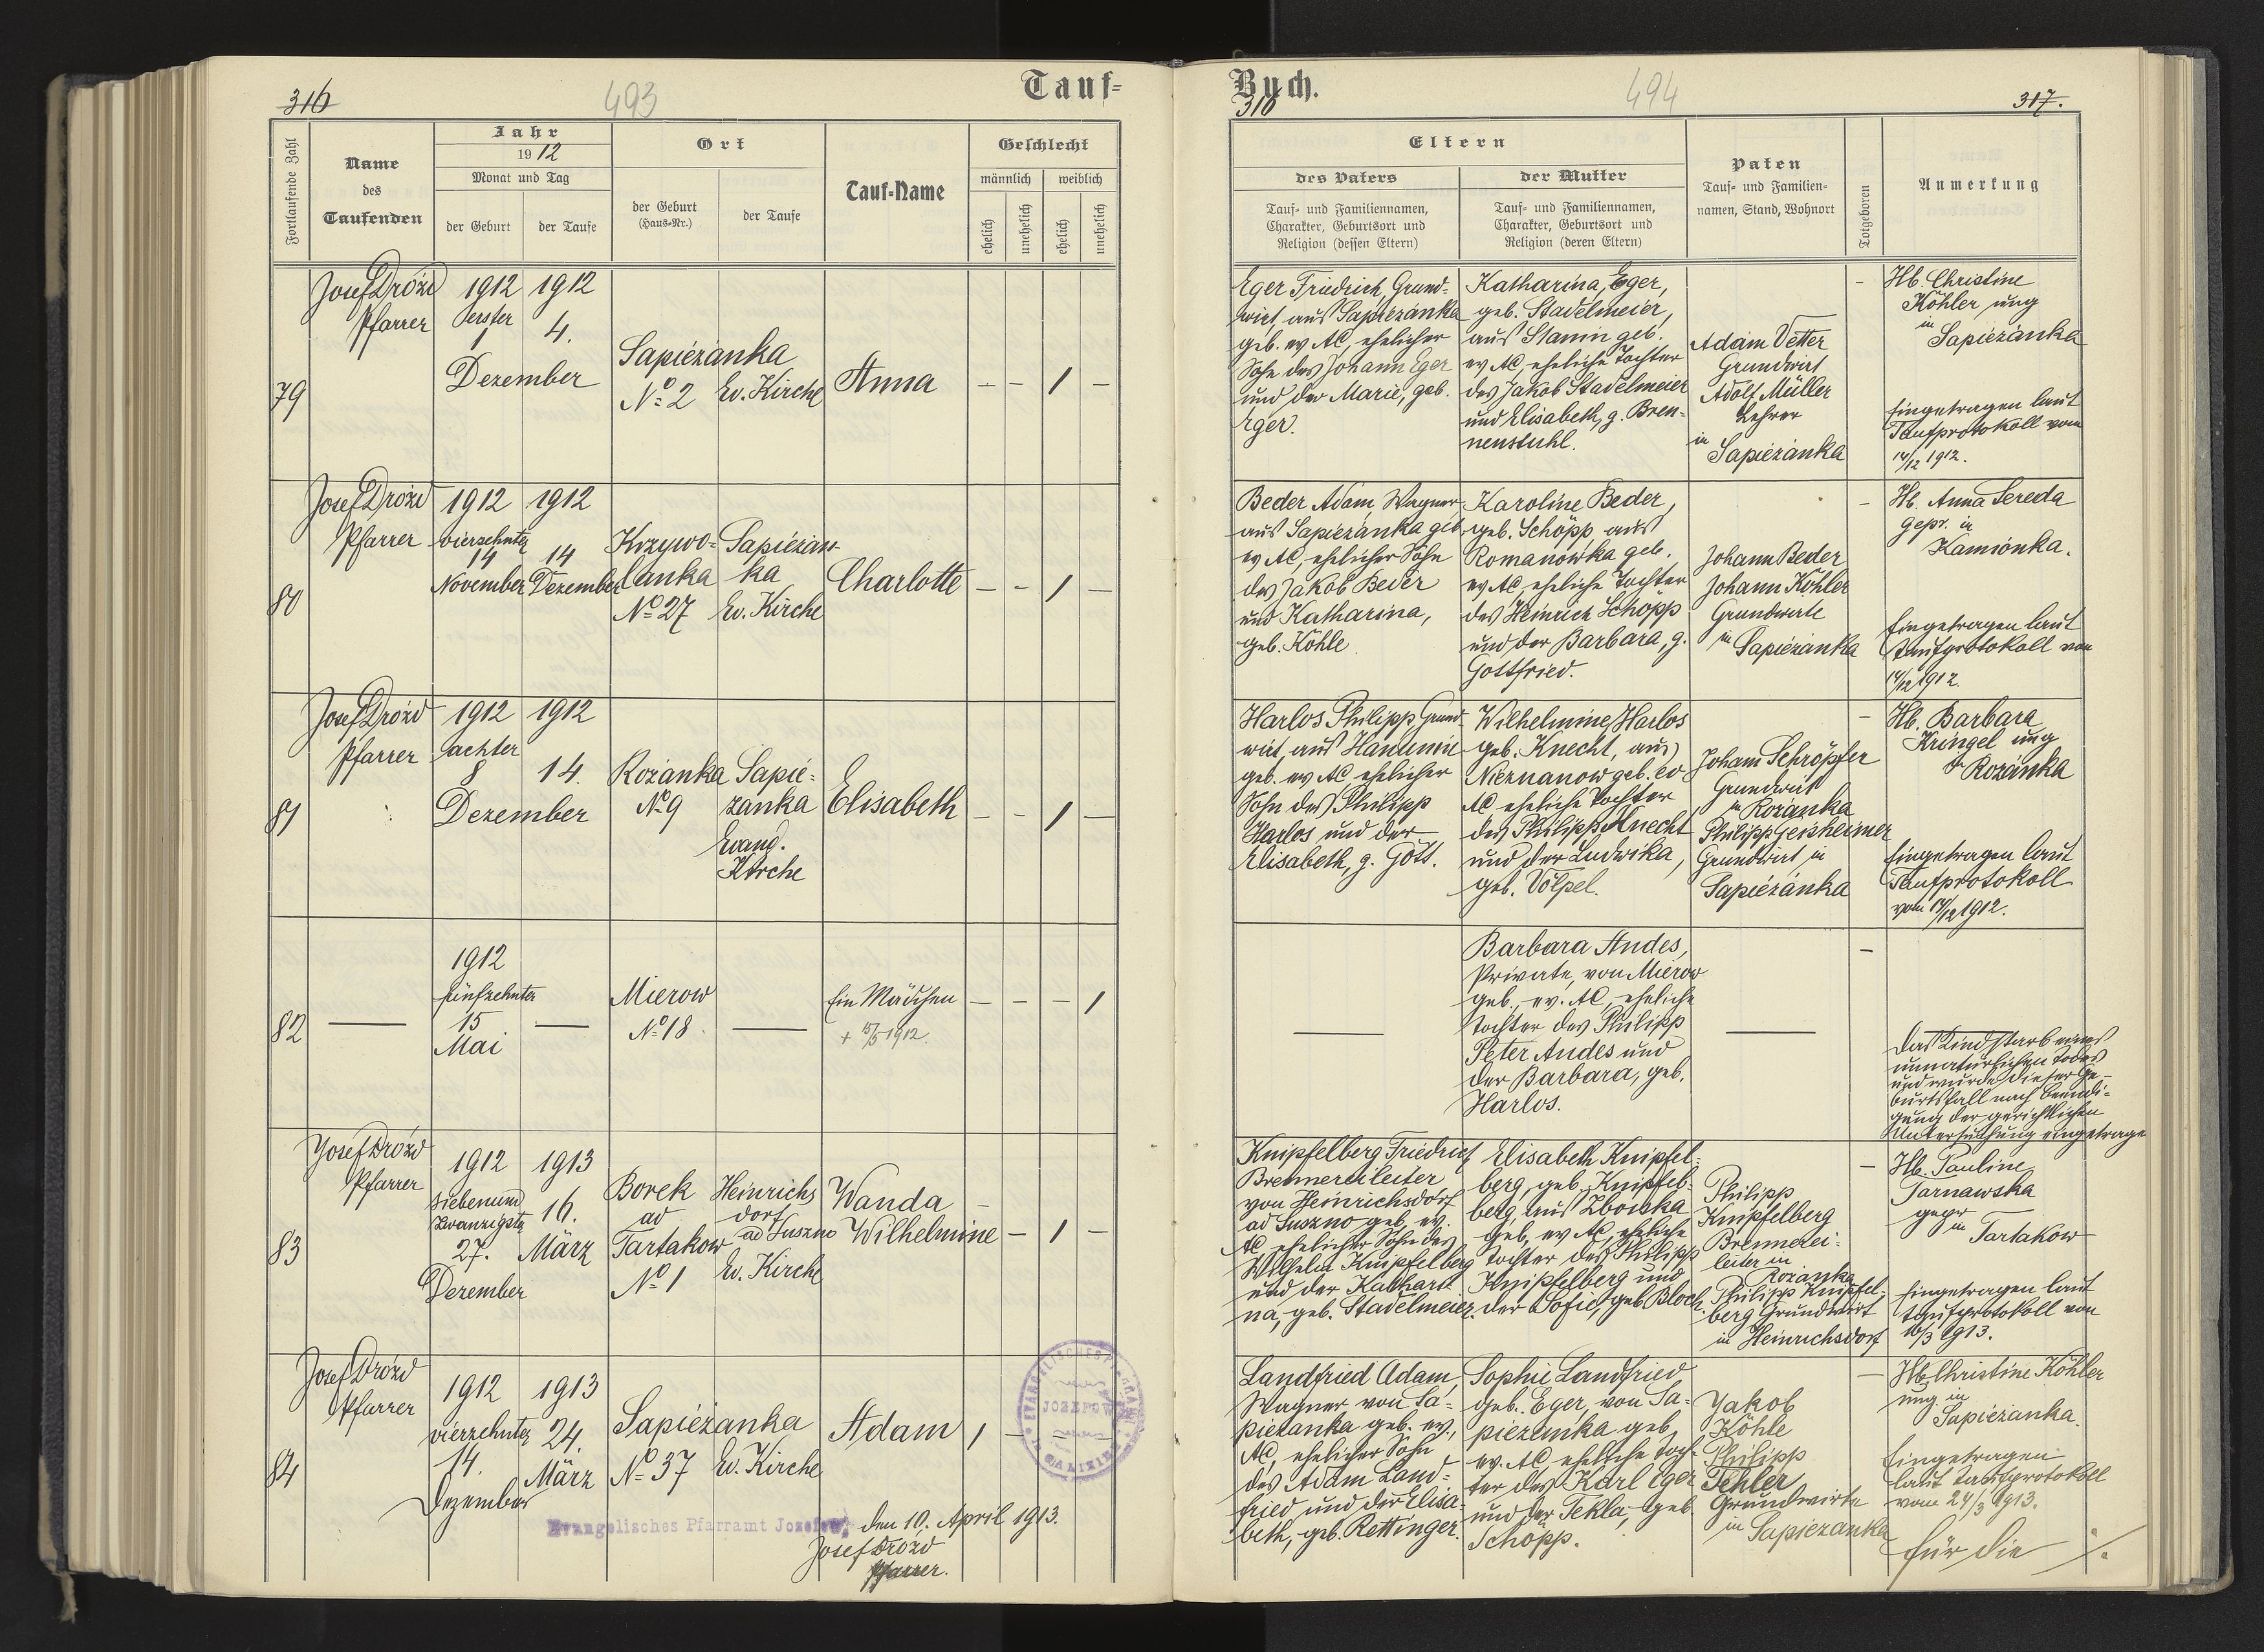 316
493
Tauf=
Fortlaufende Zahl
Name
des
Taufenden
Jahr
1912
Monat und Tag
der Geburt
der Taufe
Ort
der Geburt
(Haus=Nr.)
der Taufe
Tauf=Name
Geschlecht
männlich
weiblich
ehelich
unehelich
ehelich
unehelich
79
Josef Dróżd
Pfarrer
1912
erster
1
1912
4.
Dezember
Sapieżanka
№ 2
Ev. Kirche
Anna
— — 1 —
80
Josef Dróżd
Pfarrer
1912
vierzehnter
14
November
1912
14
Dezember
Krzywo=
lanka
№ 27
Sapieżan=
ka
Ev. Kirche
Charlotte
— — 1 —
81
Josef Dróżd
Pfarrer
1912
achter
8
1912
14.
Dezember
Rożanka
№ 9
Sapie=
żanka
Evang.
Kirche
Elisabeth
— — 1 —
82
—
1912
fünfzehnter
15
Mai
—
Mierow
№ 18.
—
Ein Mädchen
+ 15/5 1912.
— — — 1
83
Josef Dróżd
Pfarrer
1912
siebenund
zwanzigster
27.
Dezember
1913
16.
März
Borek
ad
Tartakow
№ 1
Heinrichs
dorf
ad Suszno
Ev. Kirche
Wanda
Wilhelmine
— — 1 —
84
Josef Dróżd
Pfarrer
1912
vierzehnter
14.
Dezember
1913
24.
März
Sapieżanka
№ 37
Ev. Kirche
Adam
1 — — —
Evangelisches Pfarramt Jozefow, den 10. April 1913.
Josef Dróżd
Pfarrer.
Buch.
316
494
317.
Eltern
des Vaters
Tauf= und Familiennamen,
Charakter, Geburtsort und
Religion (dessen Eltern)
der Mutter
Tauf= und Familiennamen,
Charakter, Geburtsort und
Religion (deren Eltern)
Paten
Tauf= und Familien=
namen, Stand, Wohnort
Totgeboren
Anmerkung
Eger Friedrich, Grund=
wirt, aus Sapieżanka
geb. ev AC, ehelicher
Sohn des Johann Eger
und der Marie, geb.
Eger.
Katharina, Eger,
geb. Stadelmeier,
aus Stanin geb.
ev AC, eheliche Tochter
des Jakob Stadelmeier
und Elisabeth, g. Bren=
nenstuhl.
Adam Vetter
Grundwirt
Adolf Müller
Lehrer
in
Sapieżanka
—
Hb. Christine
Köhler ung
in
Sapieżanka
Eingetragen laut
Taufprotokoll vom
14/12 1912.
Beder Adam, Wagner,
aus Sapieżanka geb.
ev AC, ehelicher Sohn
des Jakob Beder
und Katharina,
geb. Köhle
Karoline Beder,
geb. Schöpp, aus
Romanówka geb.
ev AC, eheliche Tochter
des Heinrich Schöpp
und der Barbara, g.
Gottfried.
Johann Beder
Johann Köhler
Grundwirte
in Sapieżanka
—
Hb. Anna Sereda
gepr. in
Kamionka.
Eingetragen laut
Taufprotokoll von
14/12 1912.
Harlos Philipp Grund=
wirt, aus
geb. ev AC ehelicher
Sohn des Philipp
Harlos und der
Elisabeth, g. Gött.
Wilhelmine Harlos
geb. Knecht, aus
Nieznanow geb. ev
AC eheliche Tochter
des Philipp Knecht
und der Ludwika,
geb. Völpel.
Johann Schröpfer
Grundwirt
in Rożanka
Philipp Geisheimer
Grundwirt in
Sapieżanka
—
Hb. Barbara
Kringel ung
Rożanka
Eingetragen laut
Taufprotokoll
vom 14/12 1912.
—
Barbara Andes,
Private, von Mierow
geb. ev. AC, eheliche
Tochter des Philipp
Peter Andes und
der Barbara, geb.
Harlos.
—
—
Das Kind starb eines
unnatürlichen Todes
und wurde dieser Ge=
burtsfall nach Beendi=
gung der gerichtlichen
Untersuchung eingetragen
Knipfelberg Friedrich
Brennereileiter
von Heinrichsdorf
ad Suszno geb. ev.
AC ehelicher Sohn des
Wilhelm Knipfelberg
und der Kathari=
na, geb. Stadelmeier.
Elisabeth Knipfel=
berg, geb. Knipfel=
berg, aus Zboiska
geb. ev AC, eheliche
Tochter des Philipp
Knipfelberg und
der Sofie, geb. Bloch.
Philipp
Knipfelberg
Brennerei=
leiter in
Rożanka
Philipp Knipfel=
berg Grundwirt
in Heinrichsdorf
—
Hb. Pauline
Tarnawska
gepr
in Tartakow
Eingetragen laut
Taufprotokoll von
16/3 1913.
Landfried Adam
Wagner von Sa=
pieżanka geb. ev.
AC, ehelicher Sohn
des Adam Land=
fried und der Elisa=
beth, geb. Rettinger.
Sophie Landfried
geb. Eger, von Sa=
pieżanka geb.
ev. AC, eheliche Toch=
ter des Karl Eger
und der Tekla, geb.
Schöpp.
Jakob
Köhle
Philipp
Grundwirte
in Sapieżanka
—
Hb. Christine Köhler
ung. in
Sapieżanka.
Eingetragen
laut Taufprotokoll
vom 24/3 1913.
Für die ./.